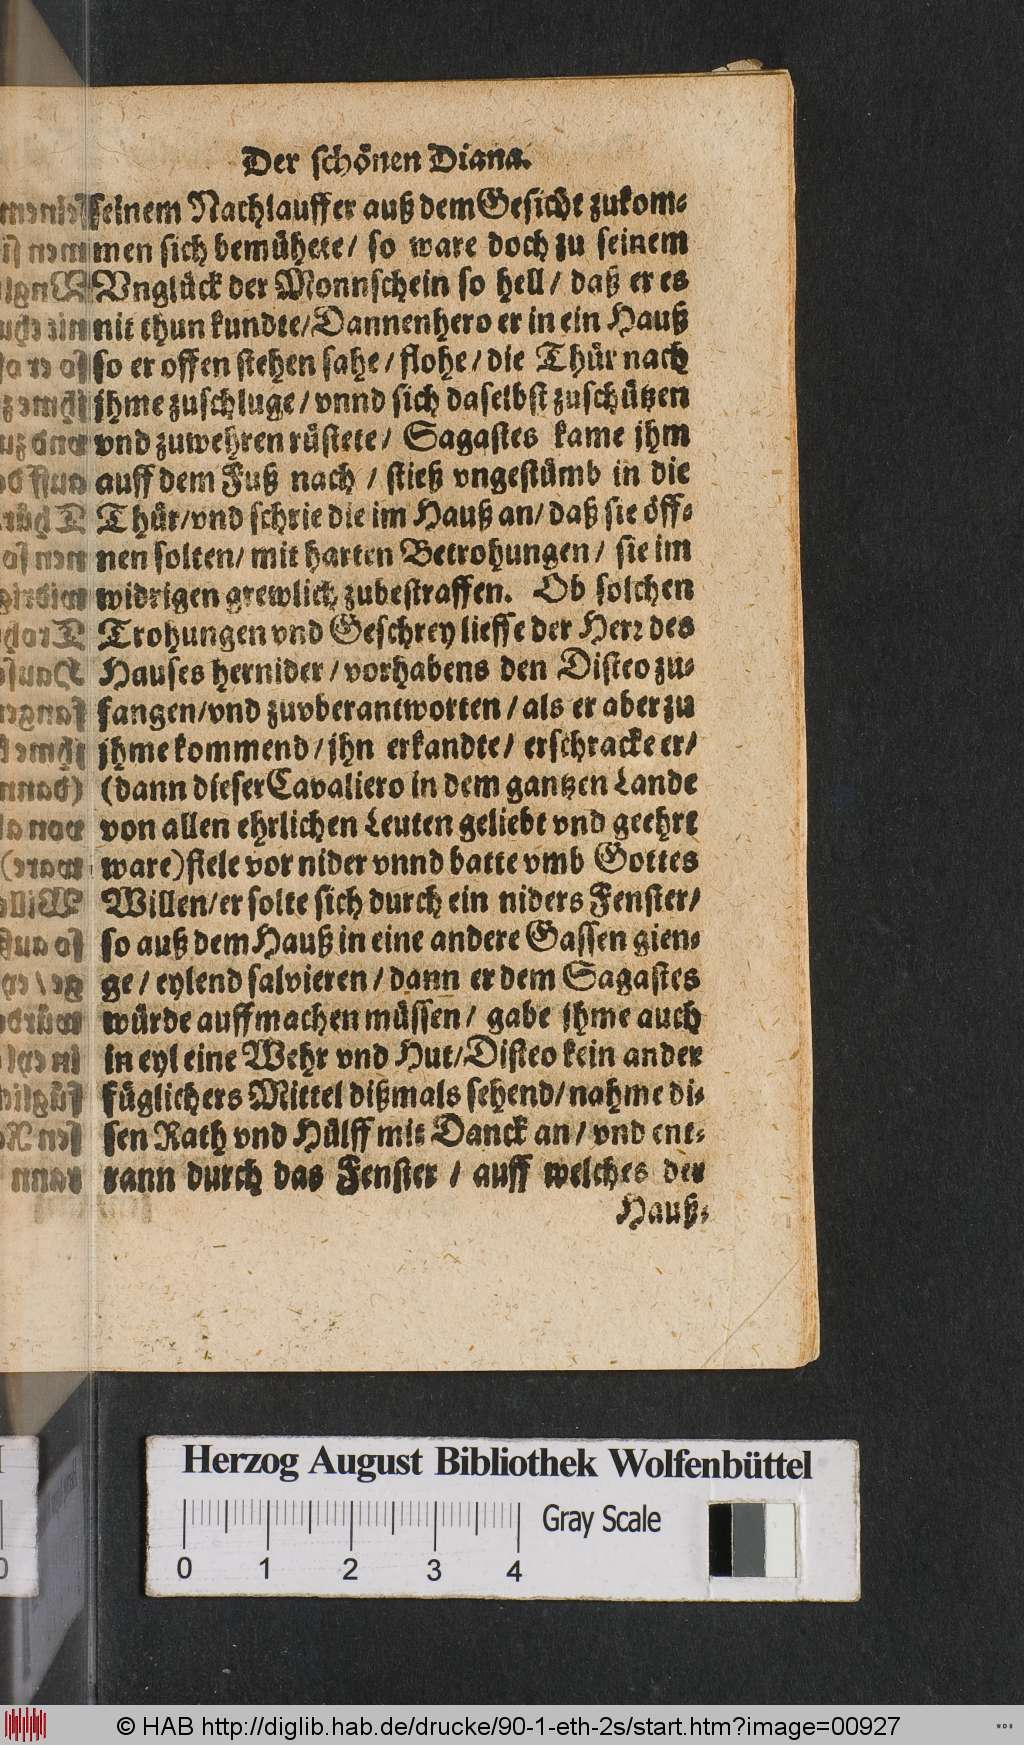 Der schönen Diana.
seinem Nachlauffer auß dem Gesicht zukom-
men sich bemühete/ so ware doch zu seinem
Vnglück der Monnschein so hell/ daß er es
nit thun kundte/Dannenhero er in ein Hauß
so er offen stehen sahe/ flohe/ die Thür nach
jhme zuschluge/ vnnd sich daselbst zuschützen
vnd zuwehren rüstete/ Sagastes kame jhm
auff dem Fuß nach / stieß vngestümb in die
Thür/vnd schrie die im Hauß an/ daß sie öff-
nen solten/ mit harten Betrohungen/ sie im
widrigen grewlich zubestraffen. Ob solchen
Trohungen vnd Geschrey lieffe der Herr des
Hauses hernider/ vorhabens den Disteo zu-
fangen/vnd zuvberantworten/ als er aber zu
jhme kommend/ jhn erkandte/ erschracke er/
(dann dieser Cavaliero in dem gantzen Lande
von allen ehrlichen Leuten geliebt vnd geehrt
ware) fiele vor nider vnnd batte vmb Gottes
Willen/er solte sich durch ein niders Fenster/
so auß dem Hauß in eine andere Gassen gien-
ge/ eylend salvieren/ dann er dem Sagastes
würde auffmachen müssen/ gabe jhme auch
in eyl eine Wehr vnd Hut/Disteo kein ander
füglichers Mittel dißmals sehend/nahme di-
sen Rath vnd Hülff mit Danck an/ vnd ent-
rann durch das Fenster / auff welches der
Hauß-
Herzog August Bibliothek Wolfenbüttel
0 1 2 3 4
Gray Scale
© HAB http://diglib.hab.de/drucke/90-1-eth-2s/start.htm?image=00927